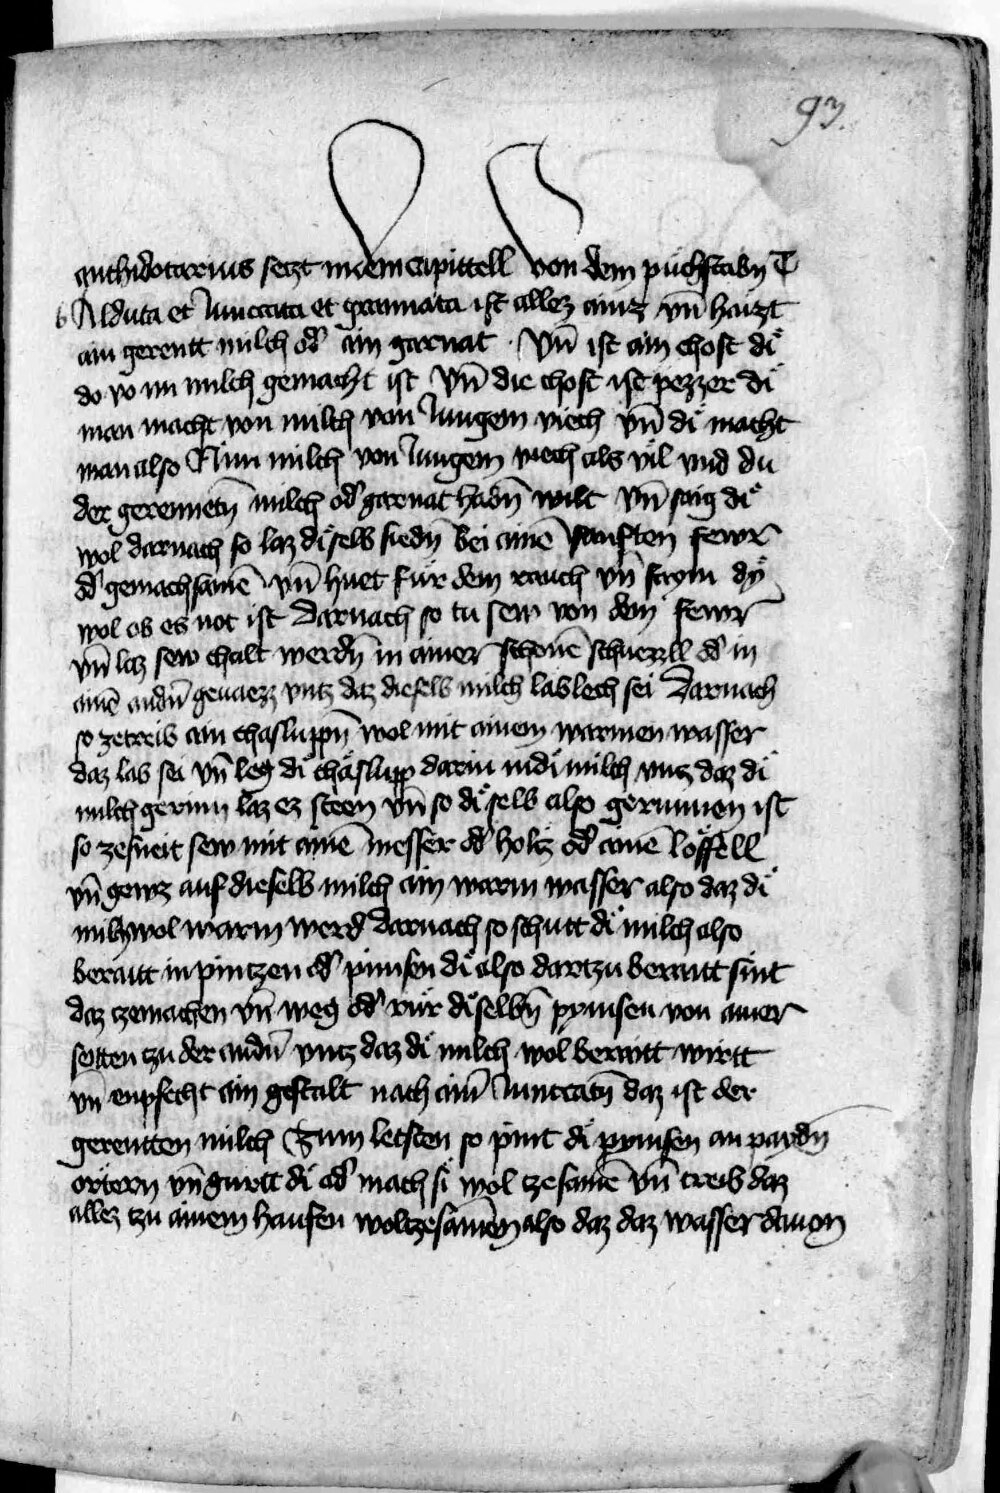 93.
anthidotarius setzt in dem capittell von dem půchstabn T
b Alduta et Iuncata et grannata ist allez ainz vn̄ haizt
ain gerentt milch od' ain garnat . Vn̄ ist ain chost di
do vo nn milch gemacht ist Vn̄ die chost ist pezzer di
man macht von milch von Iungem viech vn̄ di macht
man also Nim milch von Iungem viech als vil vnd du
der gerennetn̄ milch od' garnat habn̄ wilt vn̄ saig di
wol darnach so laz diselb siedn̄ bei ainē sanften fewr
od' gemachsamē vn̄ huet für dem rauch vn̄ faym dy
wol ob es not ist Darnach so tu sew von dem fewr
vn̄ laz sew chalt werdn̄ in ainer schonē schuezzll od' in
ainē andn̄ geuaezz vntz daz dieselb milch lablech sei Darnach
so zetreib ain chasluppn̄ wol mit ainem warmen wasser
daz lab sei vn̄ leg di chäslupp darin in di milch vntz daz di
milch gerinn laz ez steen vn̄ so diselb also gerunnen ist
so zesneit sew mit ainē messer od' holtz od' ainē löffell
vn̄ gewz auf dieselb milch ain warm wasser also daz di
milych wol warm werd Darnach so schutt di milch also
beraitt in pintzen od' pimsen di also dartzu beraitt sint
daz tzemachen vn̄ weg od' rür diselbn̄ pymsen von ainer
seitten tzu der andn̄ vntz daz di milch wol beraitt wirtt
vn̄ enpfecht ain gestalt nach aim̄ Iunccatn̄ daz ist der
gerentten milch Zum letsten so pint di pymsen an paydn̄
örtern vn̄ gurtt di od' mach si wol tzesamē vn̄ treib daz
allez tzu ainem haufen wol tzesamēn also daz daz wasser dauon